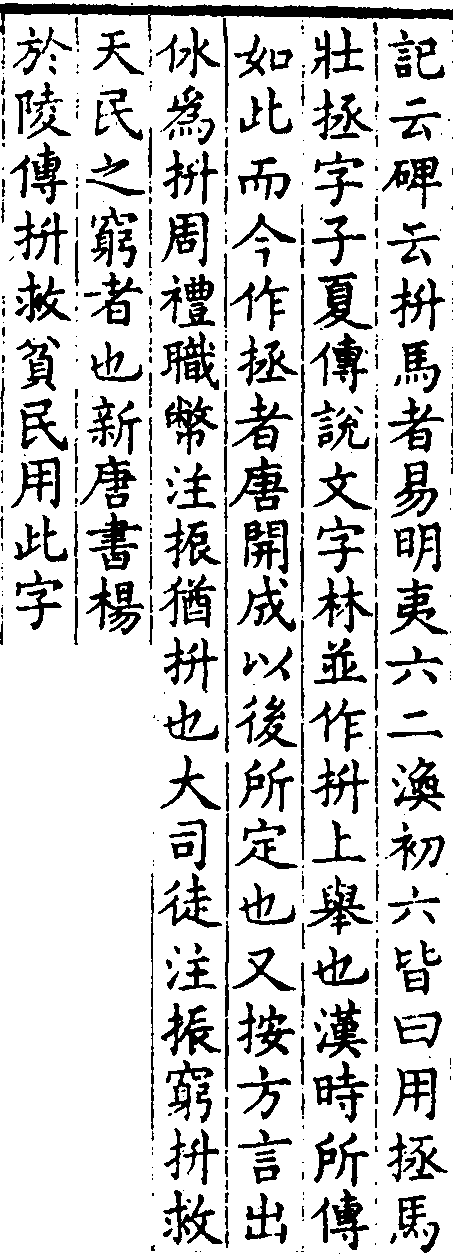 記云碑云拚馬者易明夷六二渙初六皆曰用拯馬
壯拯字子夏傳說文字林並作拚上舉也漢時所傳
如此而今作拯者唐開成以後所定也又按方言出
㐱為拚周禮職幣注振猶拚也大司徒注振窮拚救
天民之窮者也新唐書楊
於陵傳拚救貧民用此字